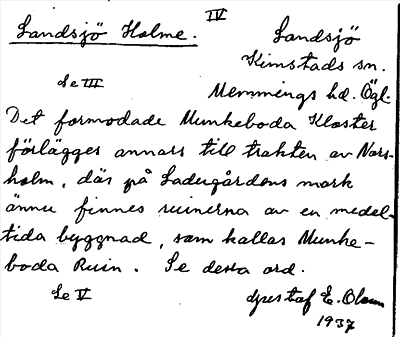 IV
Landsjö Holme.
Landsjö
Kimstads sn.
Se III
Memmings hd. Ögl.
Det formodade Munkeboda Kloster
förlägges annars till trakten av Nors-
holm, där på Ladugårdens mark
ännu finnes ruinerna av en medel-
tida byggnad, som kallas Munke-
boda Ruin. Se dessa ord.
Se V
Gustaf E. Olsson
1937